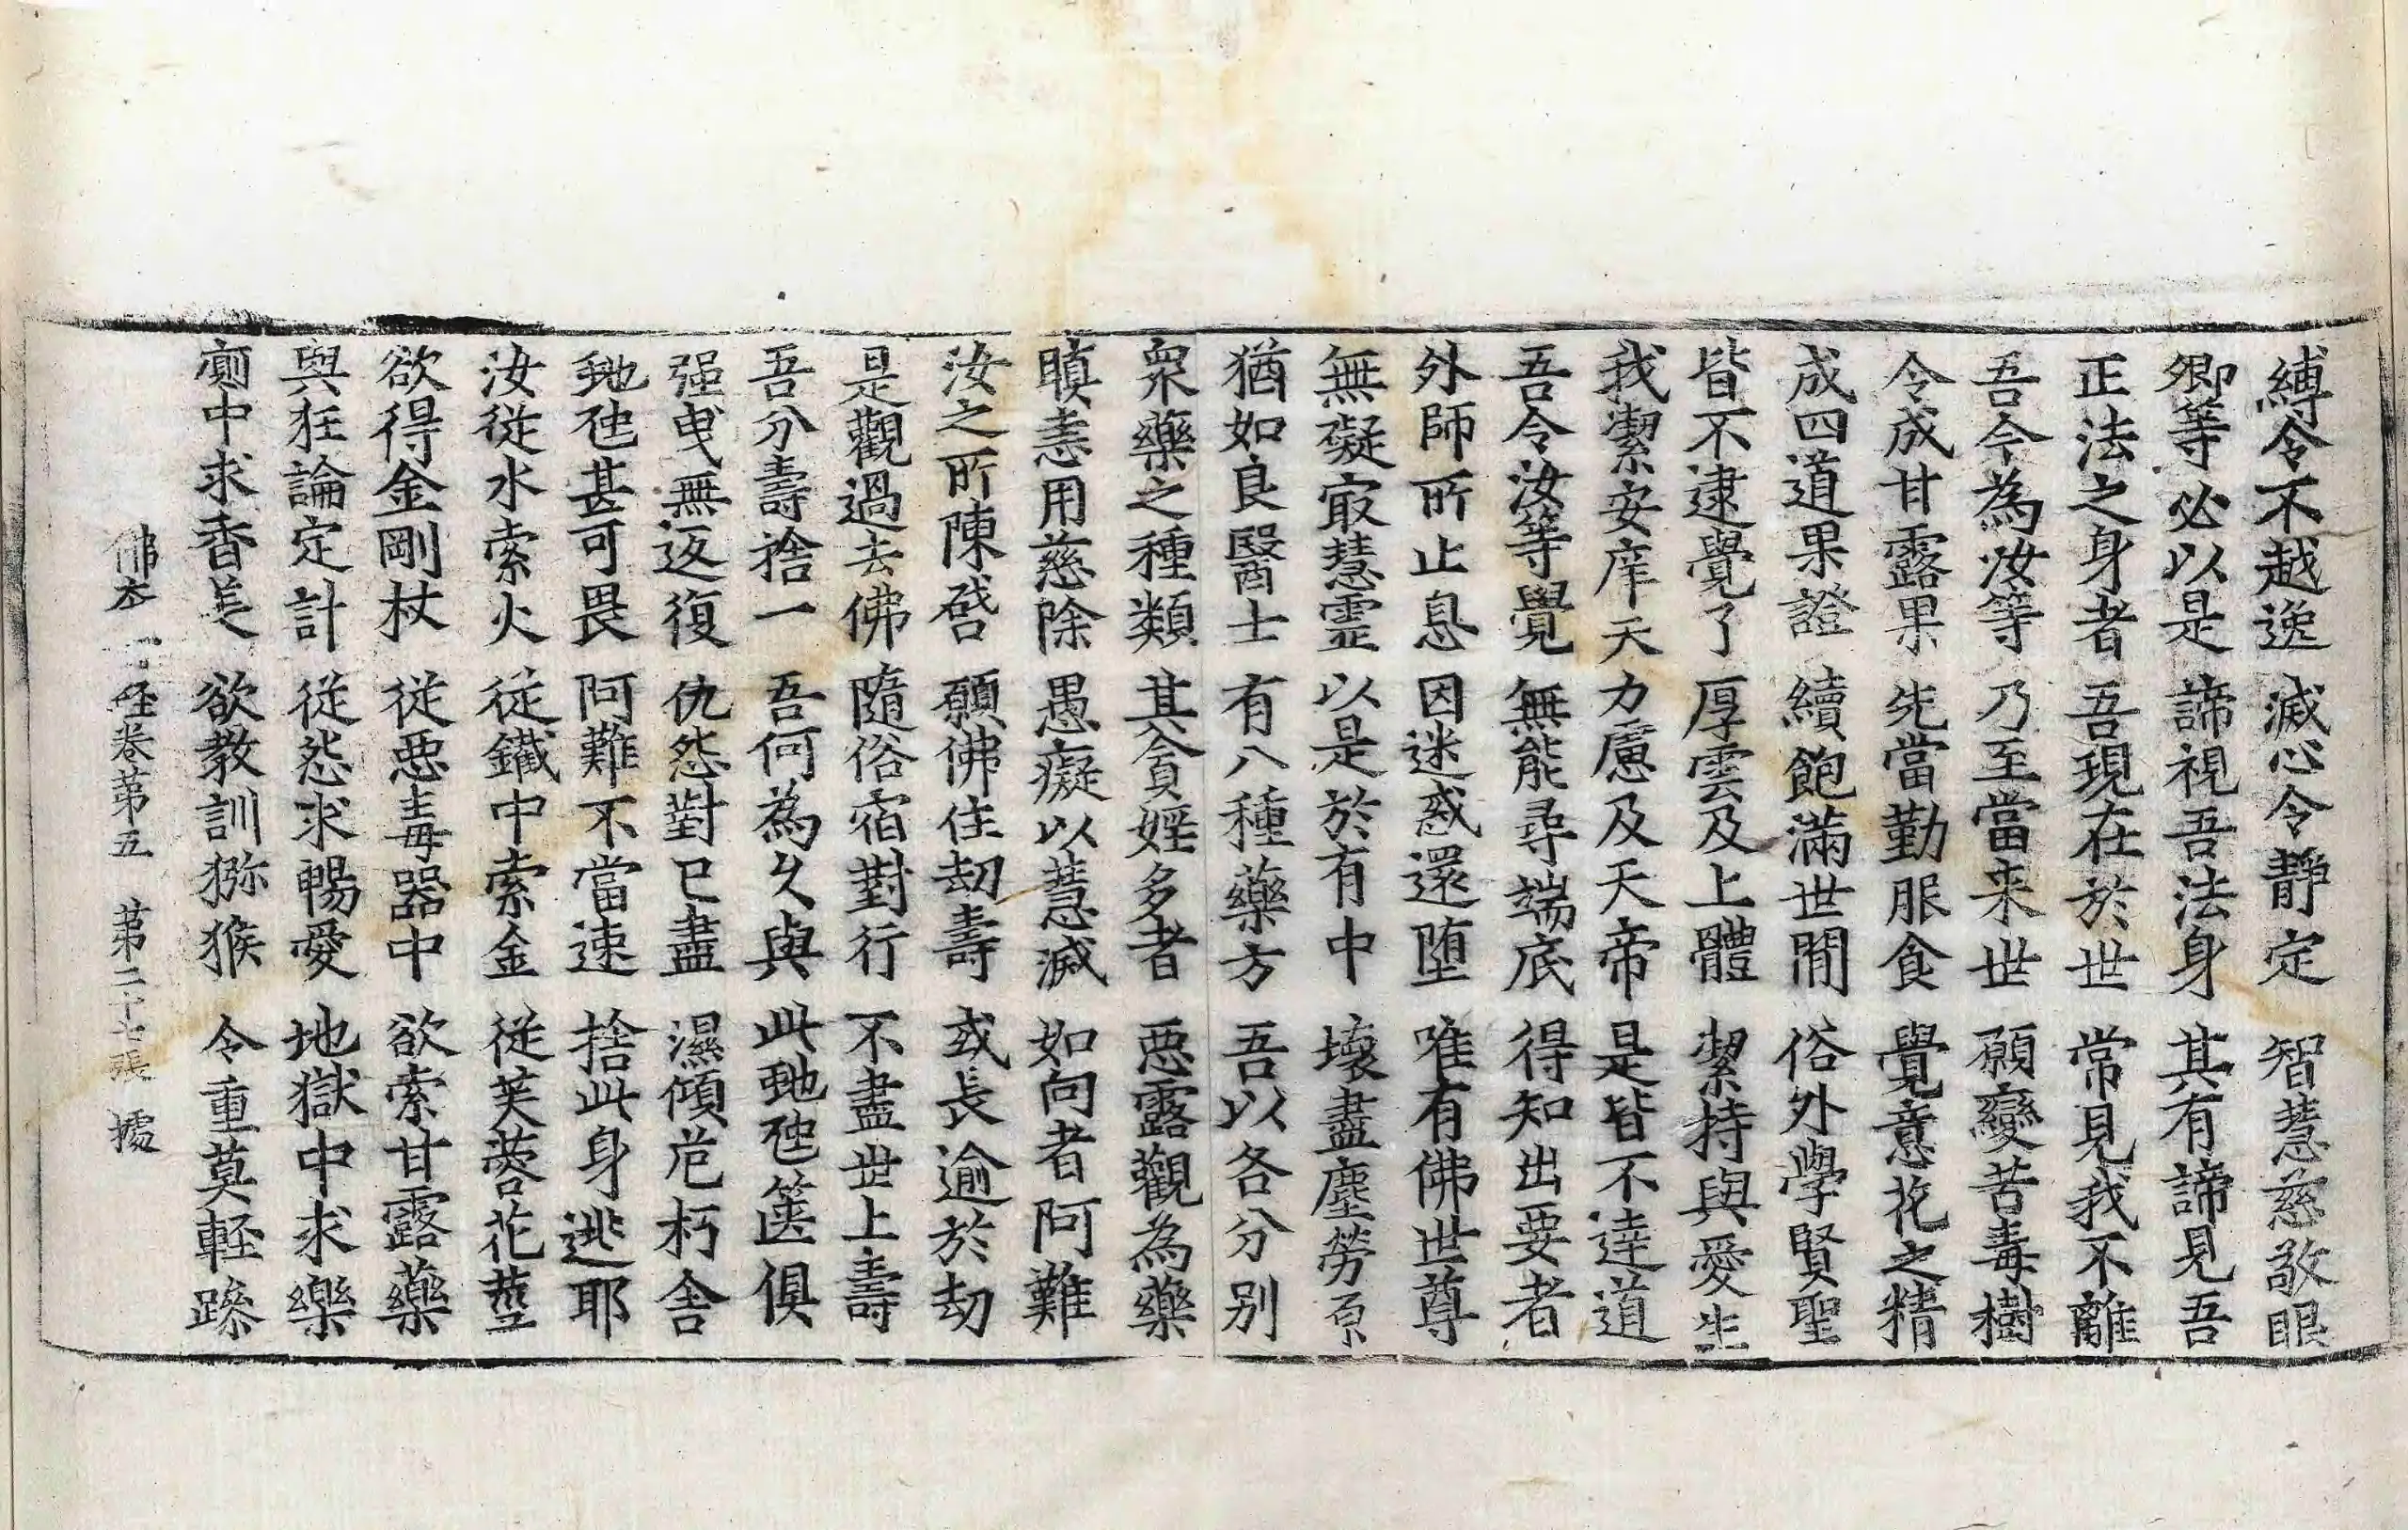 縛令不越逸　滅心令靜定　智慧慈敬眼
卿等必以是　諦視吾法身　其有諦見吾
正法之身者　吾現在於世　常見我不離
吾今為汝等　乃至當来世　願變苦毒樹
令成甘露果　先當勤服食　覺意花之精
成四道果證　續飽滿世間　俗外學賢聖
皆不逮覺了　厚雲及上體　潔持與愛生
我潔安庠天　力慮及天帝　是皆不達道
吾令汝等覺　無能尋端底　得知出要者
外師所止息　因迷惑還堕　唯有佛世尊
無礙㝡慧霊　以是於有中　壞盡塵勞原
猶如良醫士　有八種藥方　吾以各分別
衆藥之種類　其貪婬多者　惡露觀為藥
瞋恚用慈除　愚癡以慧滅　如向者阿難
汝之所陳啓　願佛住劫壽　或長逾於劫
是觀過去佛　隨俗宿對行　不盡世上壽
吾分壽捨一　吾何為久與　此虵虺篋俱
强曵無返復　仇怨對已盡　濕傾危朽舍
虵虺甚可畏　阿難不當速　捨此身逃耶
汝從水索火　從鐵中索金　從芙蓉花莖
欲得金剛杖　從惡毒器中　欲索甘露藥
與狂論定計　從怨求暢愛　地獄中求樂
廁中求香美　欲教訓猕猴　令重莫輕躁
佛本行経卷第五　第二十七張　據